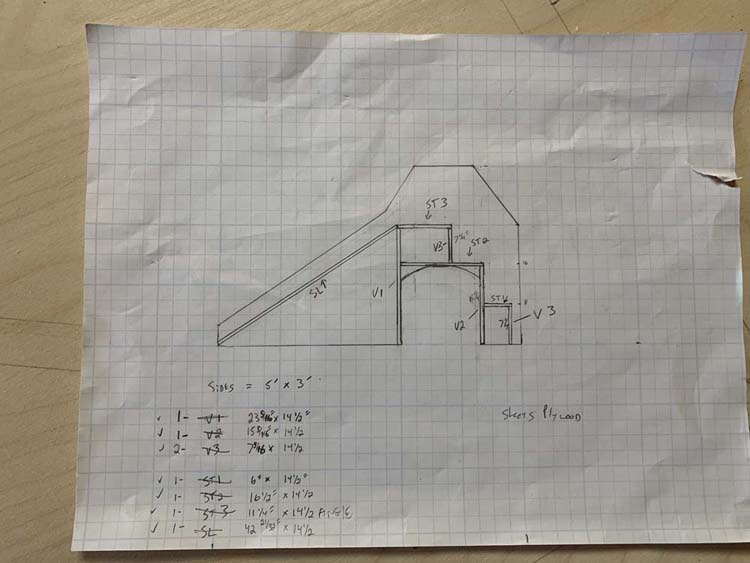 ST3
7 1/4"
V3
ST2
16
SL
V1
8
ST1
V2
7 1/4
V3
SIDES = 5' x 3'
SHEETS PLYWOOD
✓ 1- V1 23 5/16" x 14 1/2"
✓ 1- V2 15 5/16" x 14 1/2
✓ 2- V3 7 5/16 x 14 1/2
✓ 1- ST1 6" x 14 1/2"
✓ 1- ST2 16 1/2" x 14 1/2
✓ 1- ST3 11 1/4" x 14 1/2 ANGLE
✓ 1- SL 42 21/32" x 14 1/2